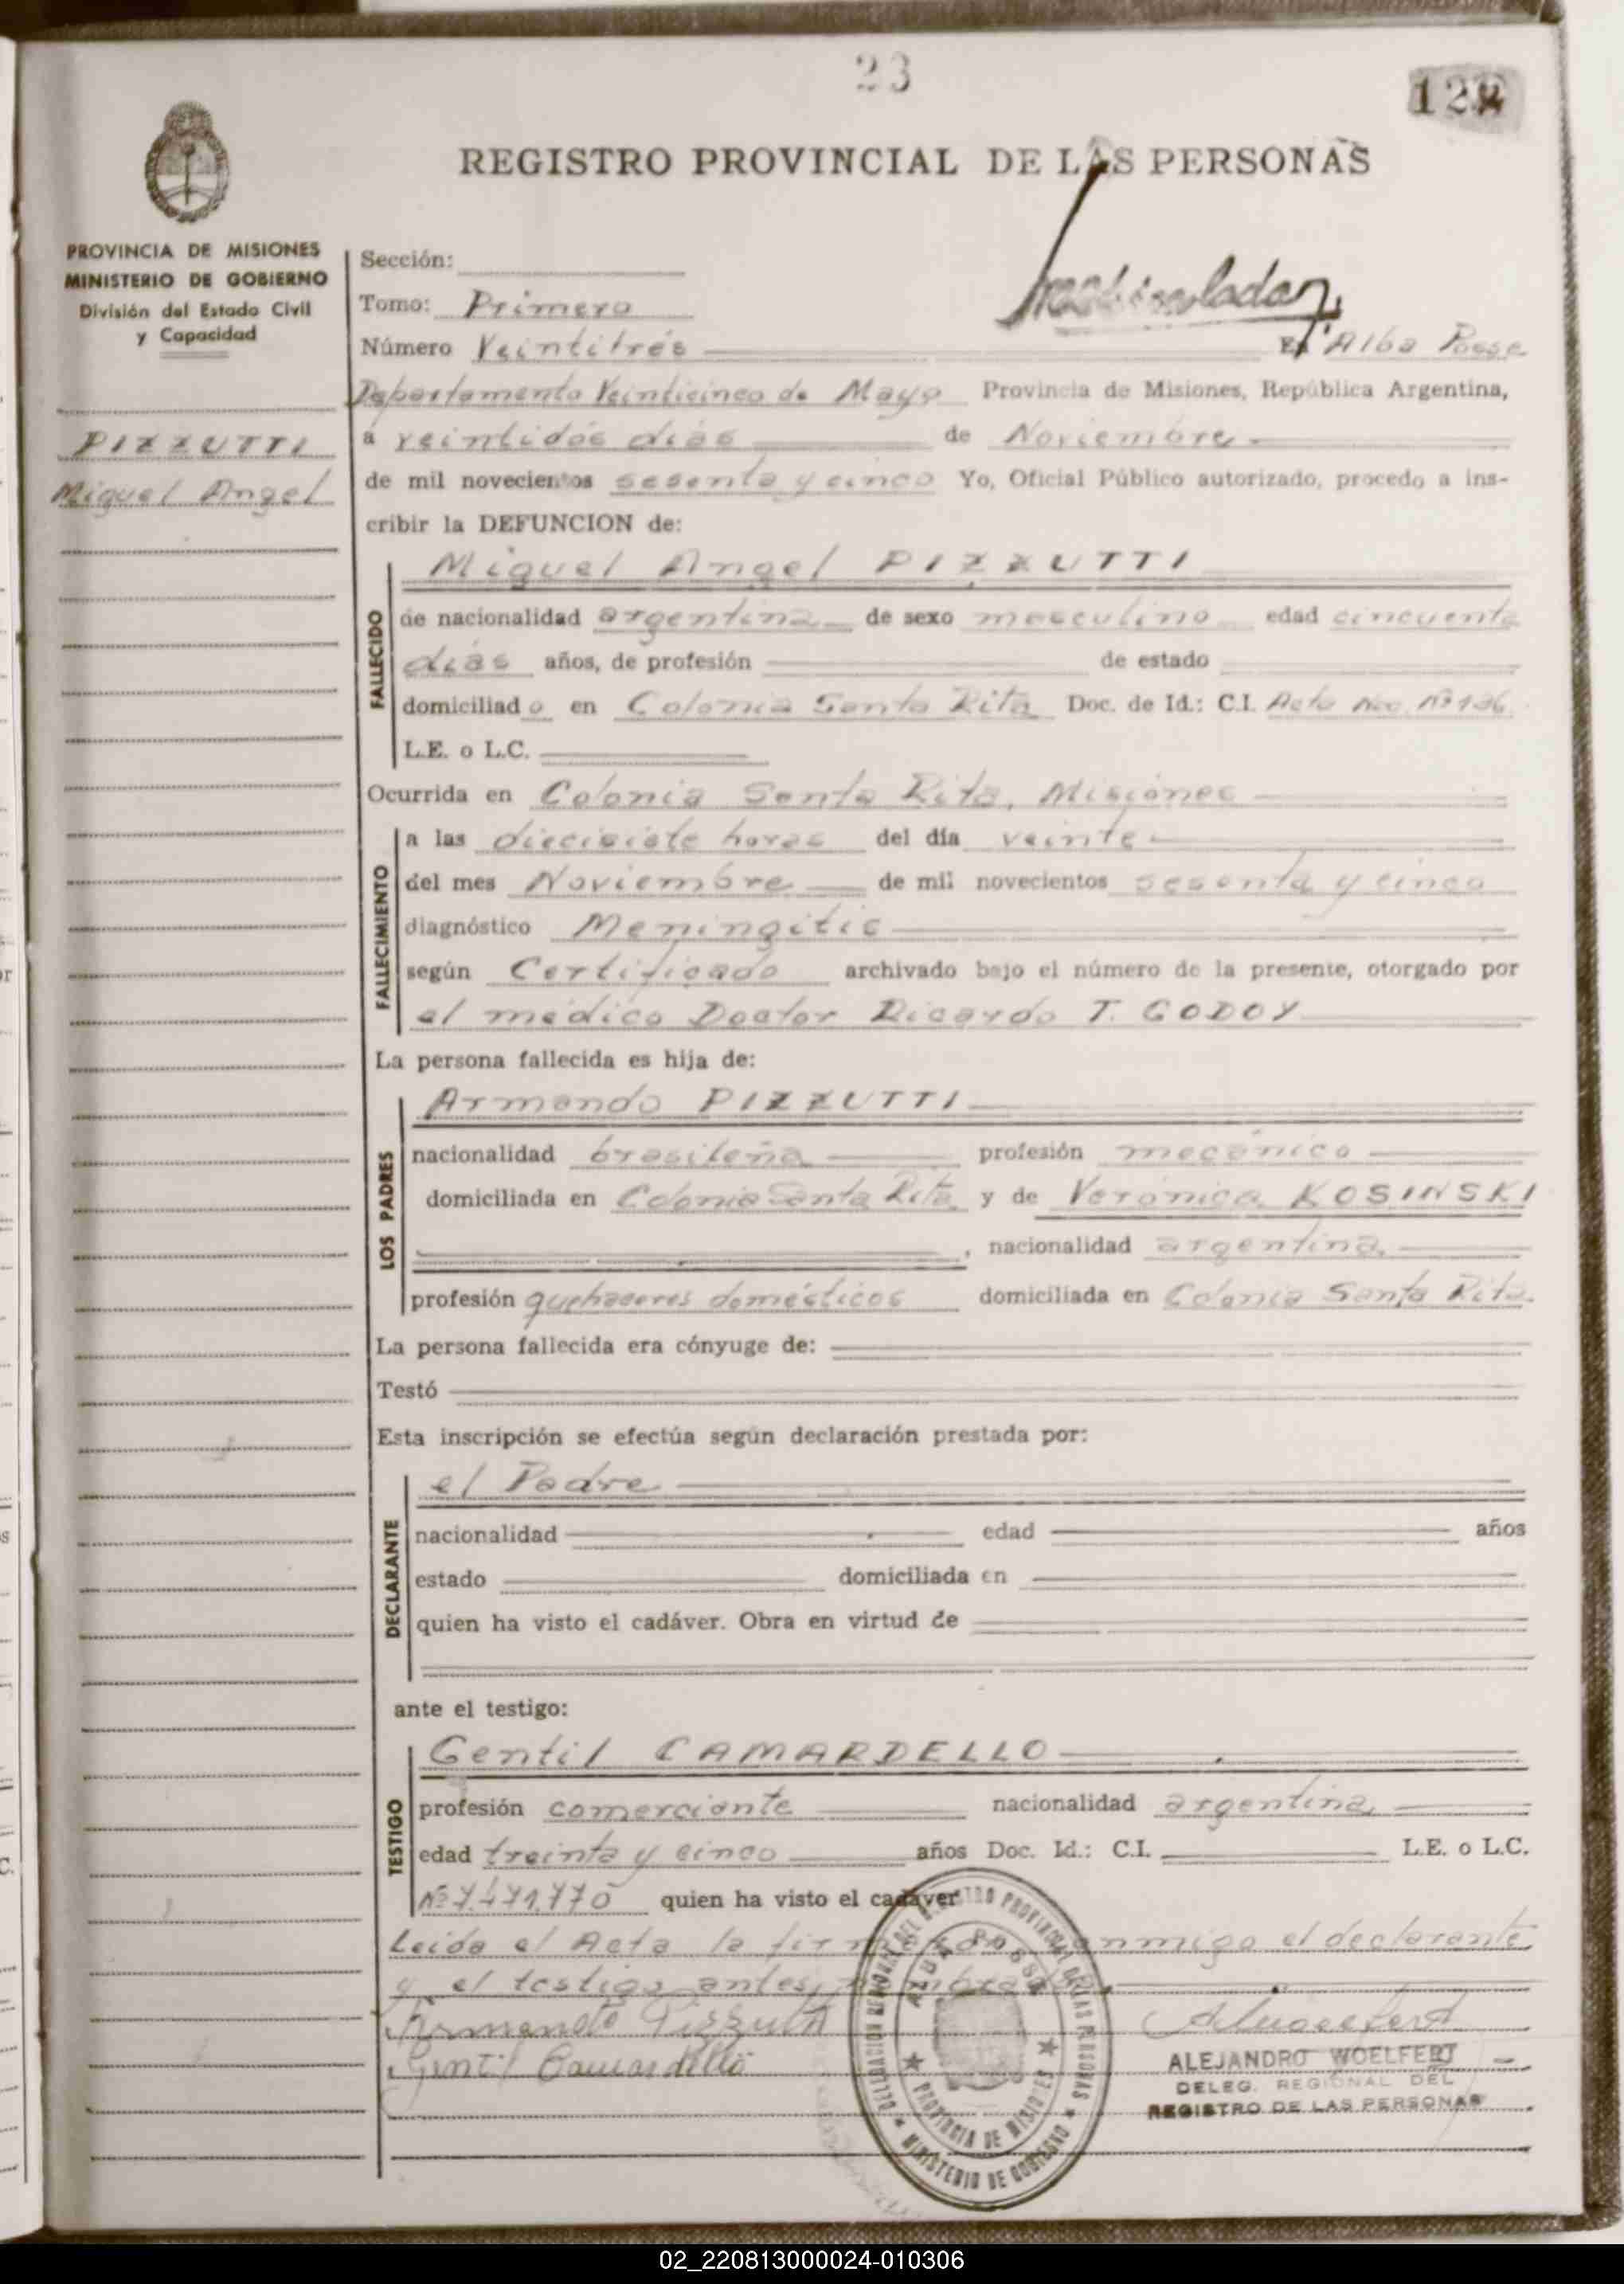 23
REGISTRO PROVINCIAL DE LAS PERSONAS
PROVINCIA DE MISIONES
MINISTERIO DE GOBIERNO
División del Estado Civil
y Capacidad
PIZZUTTI
Miguel Angel
Sección:
Tomo: Primero
Número Veintitrés En Alba Posse
Departamento Veinticinco de Mayo Provincia de Misiones, República Argentina,
a veintidós días de Noviembre
de mil novecientos sesenta y cinco Yo, Oficial Público autorizado, procedo a ins-
cribir la DEFUNCION de:
FALLECIDO
Miguel Angel PIZZUTTI
de nacionalidad argentina de sexo masculino edad cincuenta
días años, de profesión de estado
domiciliado en Colonia Santa Rita Doc. de Id.: C.I. Acta Nac. Nº 136
L.E. o L.C.
Ocurrida en Colonia Santa Rita, Misiones
FALLECIMIENTO
a las diecisiete horas del día veinte
del mes Noviembre de mil novecientos sesenta y cinco
diagnóstico Meningitis
según Certificado archivado bajo el número de la presente, otorgado por
el médico Doctor Ricardo T. GODOY
La persona fallecida es hija de:
LOS PADRES
Armando PIZZUTTI
nacionalidad brasileña profesión mecánico
domiciliada en Colonia Santa Rita y de Verónica KOSINSKI
, nacionalidad argentina,
profesión quehaceres domésticos domiciliada en Colonia Santa Rita.
La persona fallecida era cónyuge de:
Testó
Esta inscripción se efectúa según declaración prestada por:
DECLARANTE
el Padre
nacionalidad edad años
estado domiciliada en
quien ha visto el cadáver. Obra en virtud de
ante el testigo:
TESTIGO
Gentil CAMARDELLO
profesión comerciante nacionalidad argentina,
edad treinta y cinco años Doc. Id.: C.I. L.E. o L.C.
Nº 7.471.770 quien ha visto el cadáver
Leída el Acta la firman conmigo el declarante
y el testigo antes nombrados.
Armando Pizzutti
Gentil Camardello
DELEGACION REGIONAL DEL REGISTRO PROVINCIAL DE LAS PERSONAS
MINISTERIO DE GOBIERNO
ALBA POSSE
PROVINCIA DE MISIONES
ALEJANDRO WOELFERT
DELEG. REGIONAL DEL
REGISTRO DE LAS PERSONAS
02_220813000024-010306